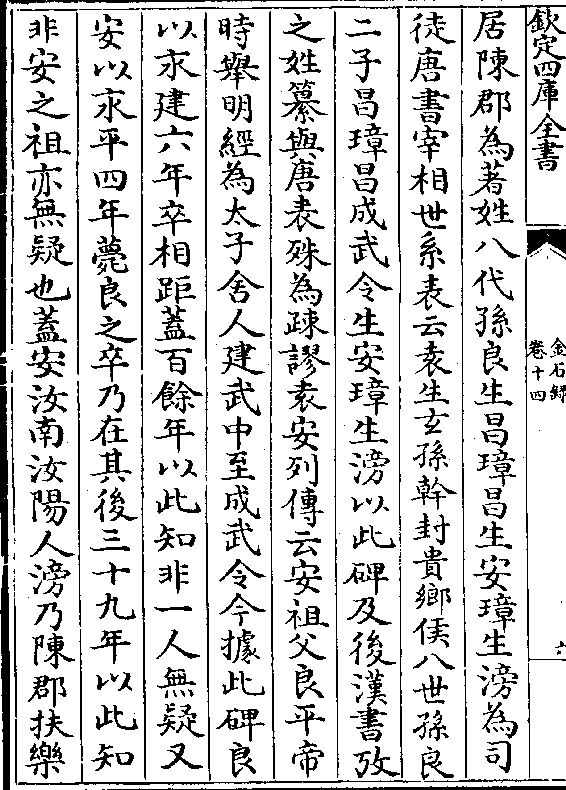 欽定四庫全書
金石録
卷十四
六
居陳郡為著姓八代孫良生昌璋昌生安璋生滂為司
徒唐書宰相世系表云袁生玄孫幹封貴鄉侯八世孫良
二子昌璋昌成武令生安璋生滂以此碑及後漢書攷
之姓纂與唐表殊為疎謬袁安列傳云安祖父良平帝
時舉明經為太子舍人建武中至成武令今據此碑良
以永建六年卒相距蓋百餘年以此知非一人無疑又
安以永平四年薨良之卒乃在其後三十九年以此知
非安之祖亦無疑也蓋安汝南汝陽人滂乃陳郡扶樂